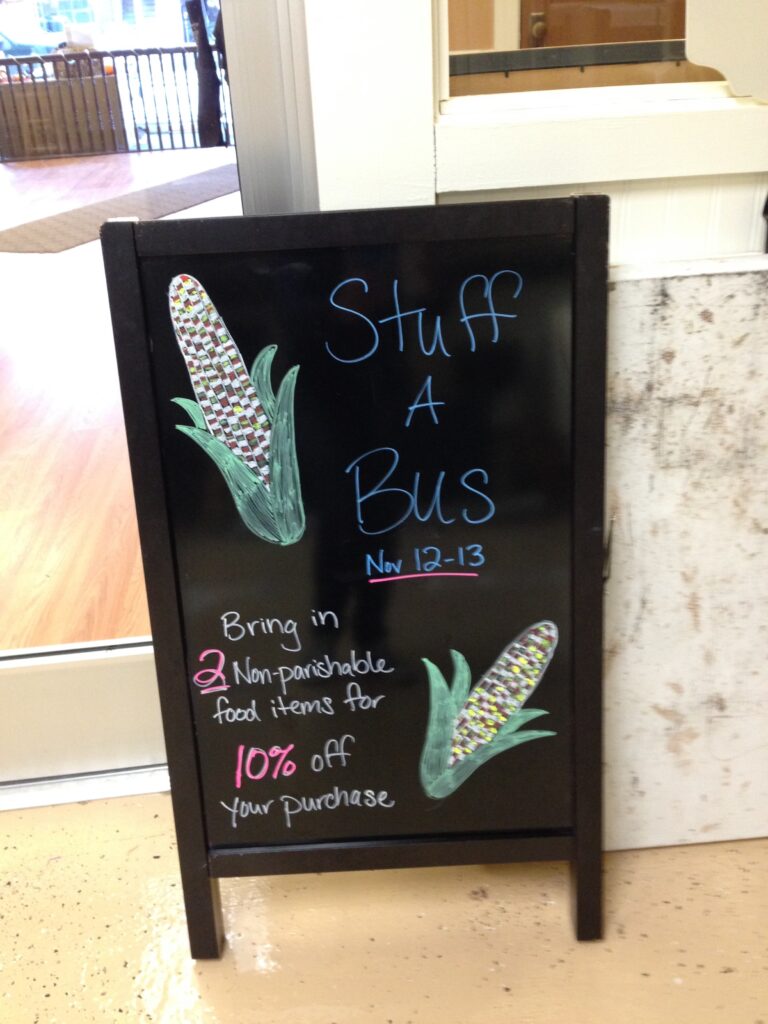 Stuff
A
Bus
Nov 12-13
Bring in
2 Non-parishable
food items for
10% off
your purchase